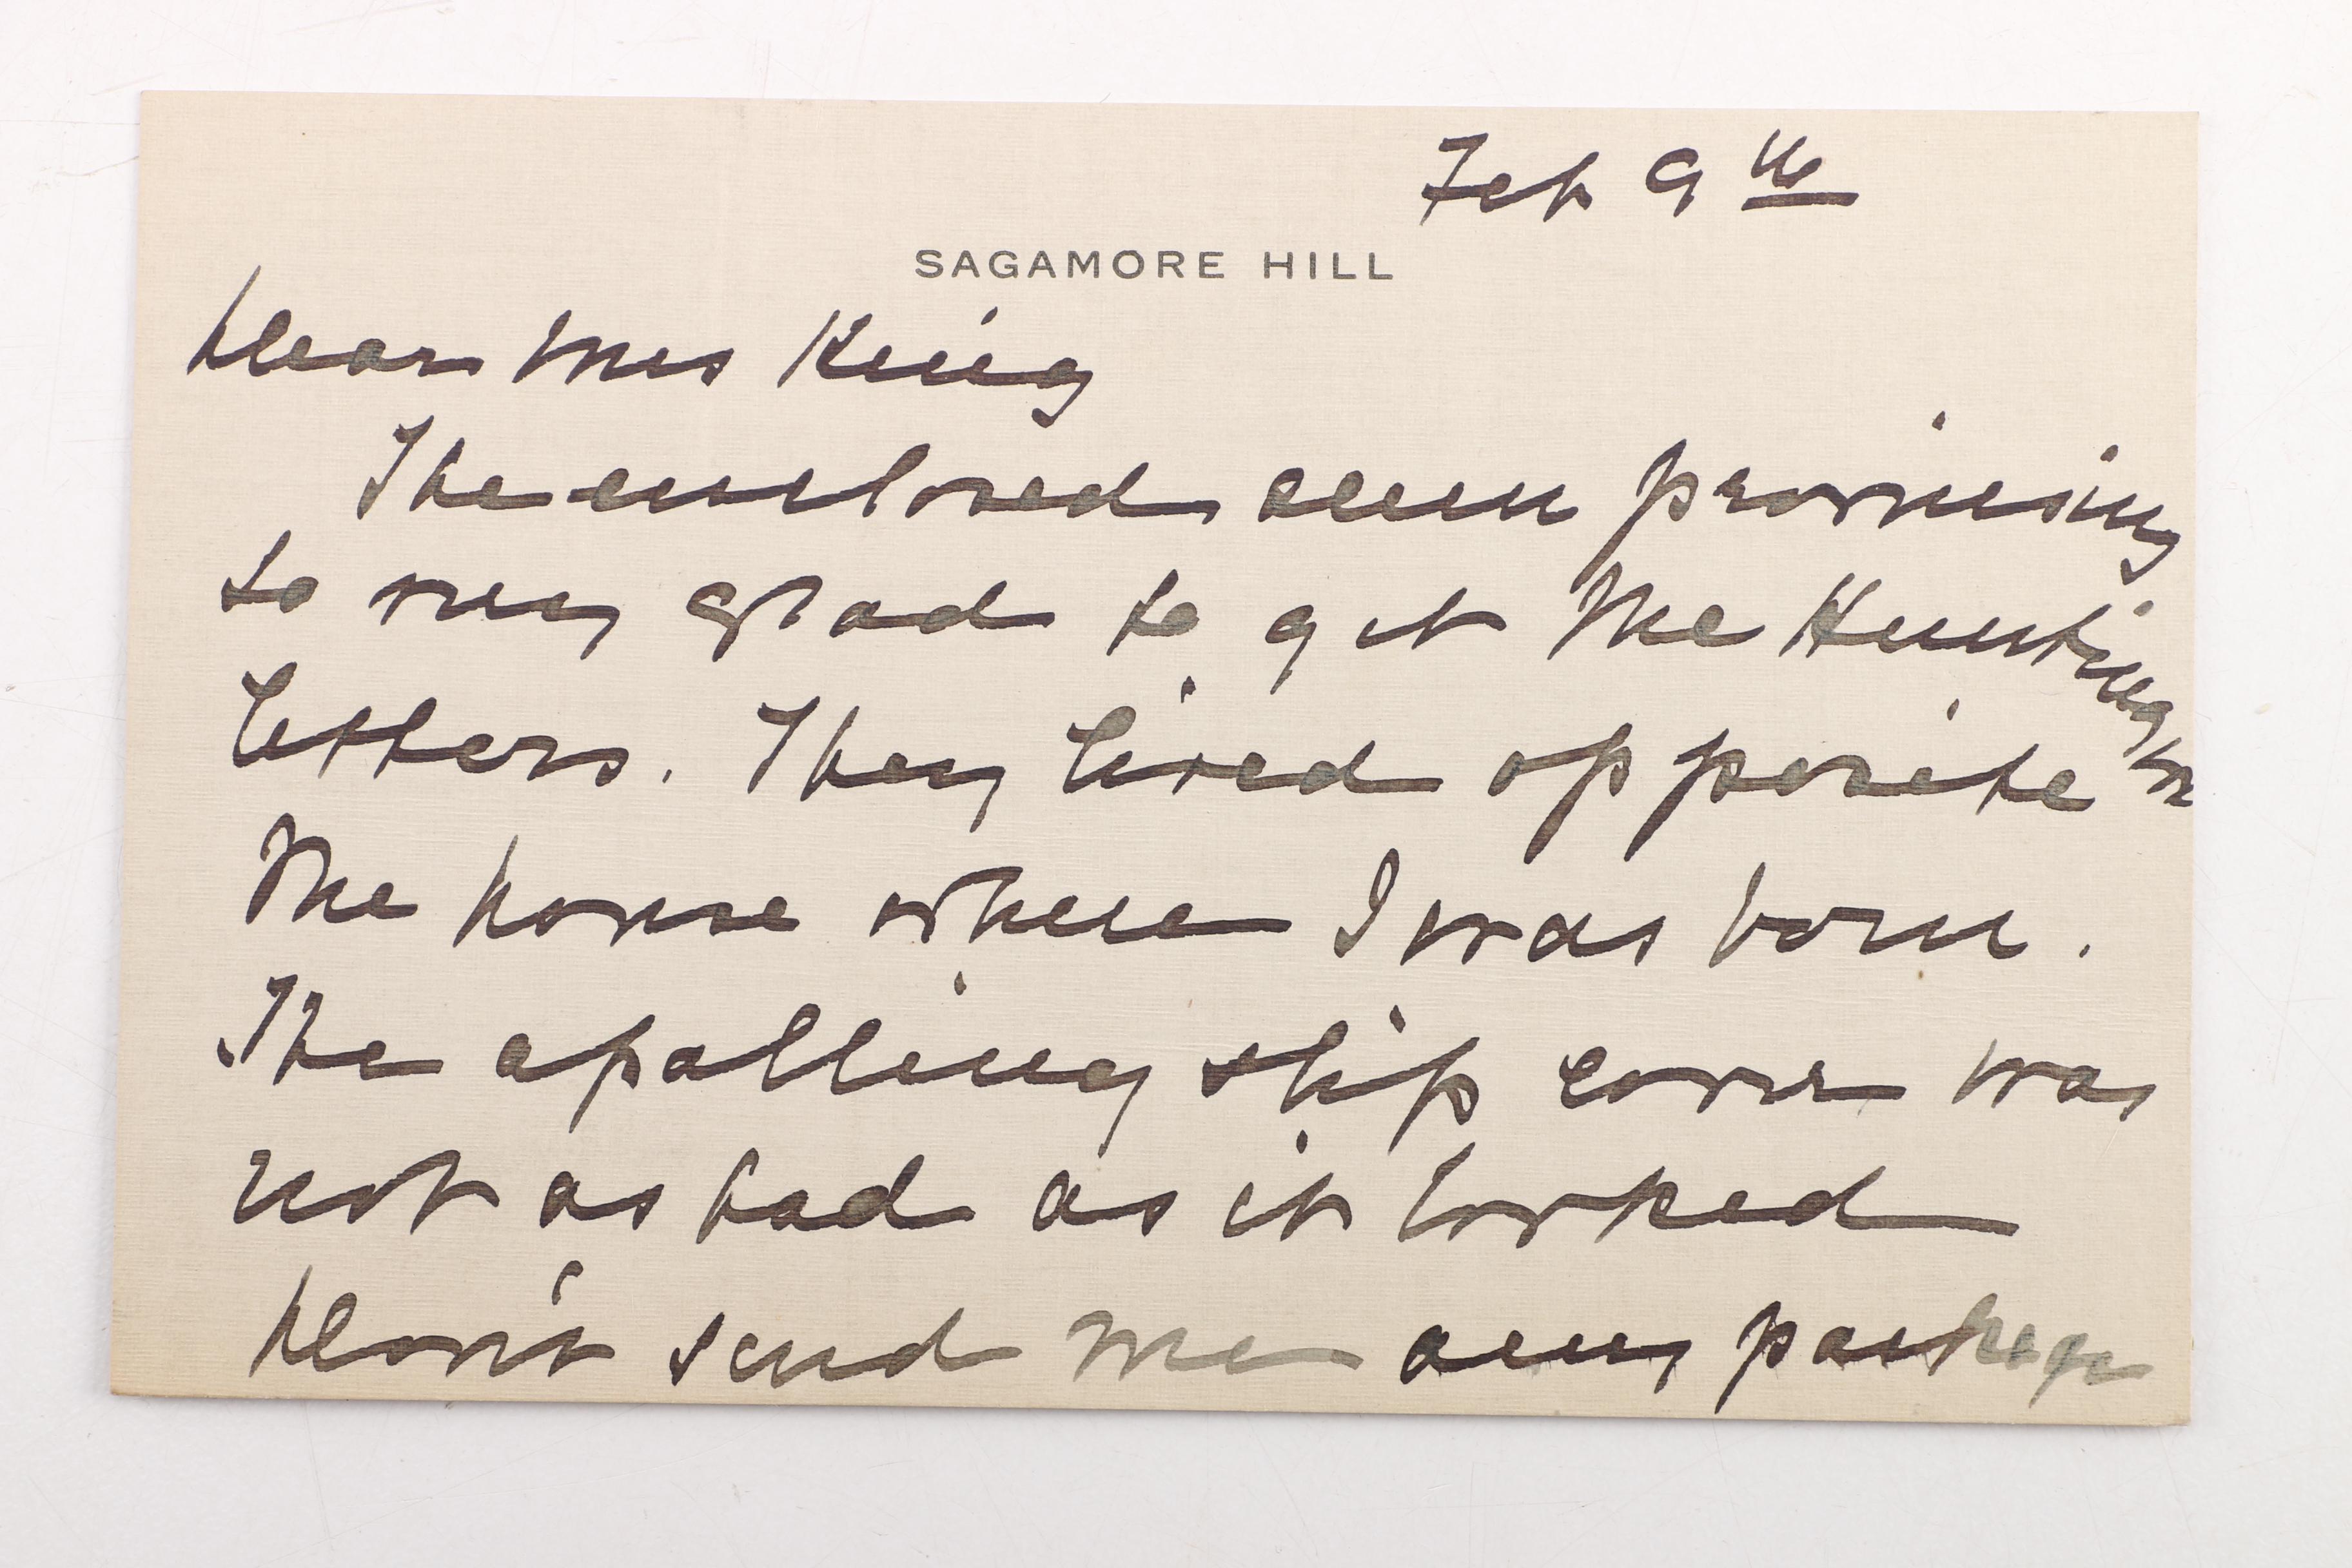 Feb 9th
SAGAMORE HILL
Dear Mrs King
The enclosed seem promising
to my glad to get the Huntington
letters. They lived opposite
the house where I was born.
The apalling slip cover was
not as bad as it looked
Don't send me any package